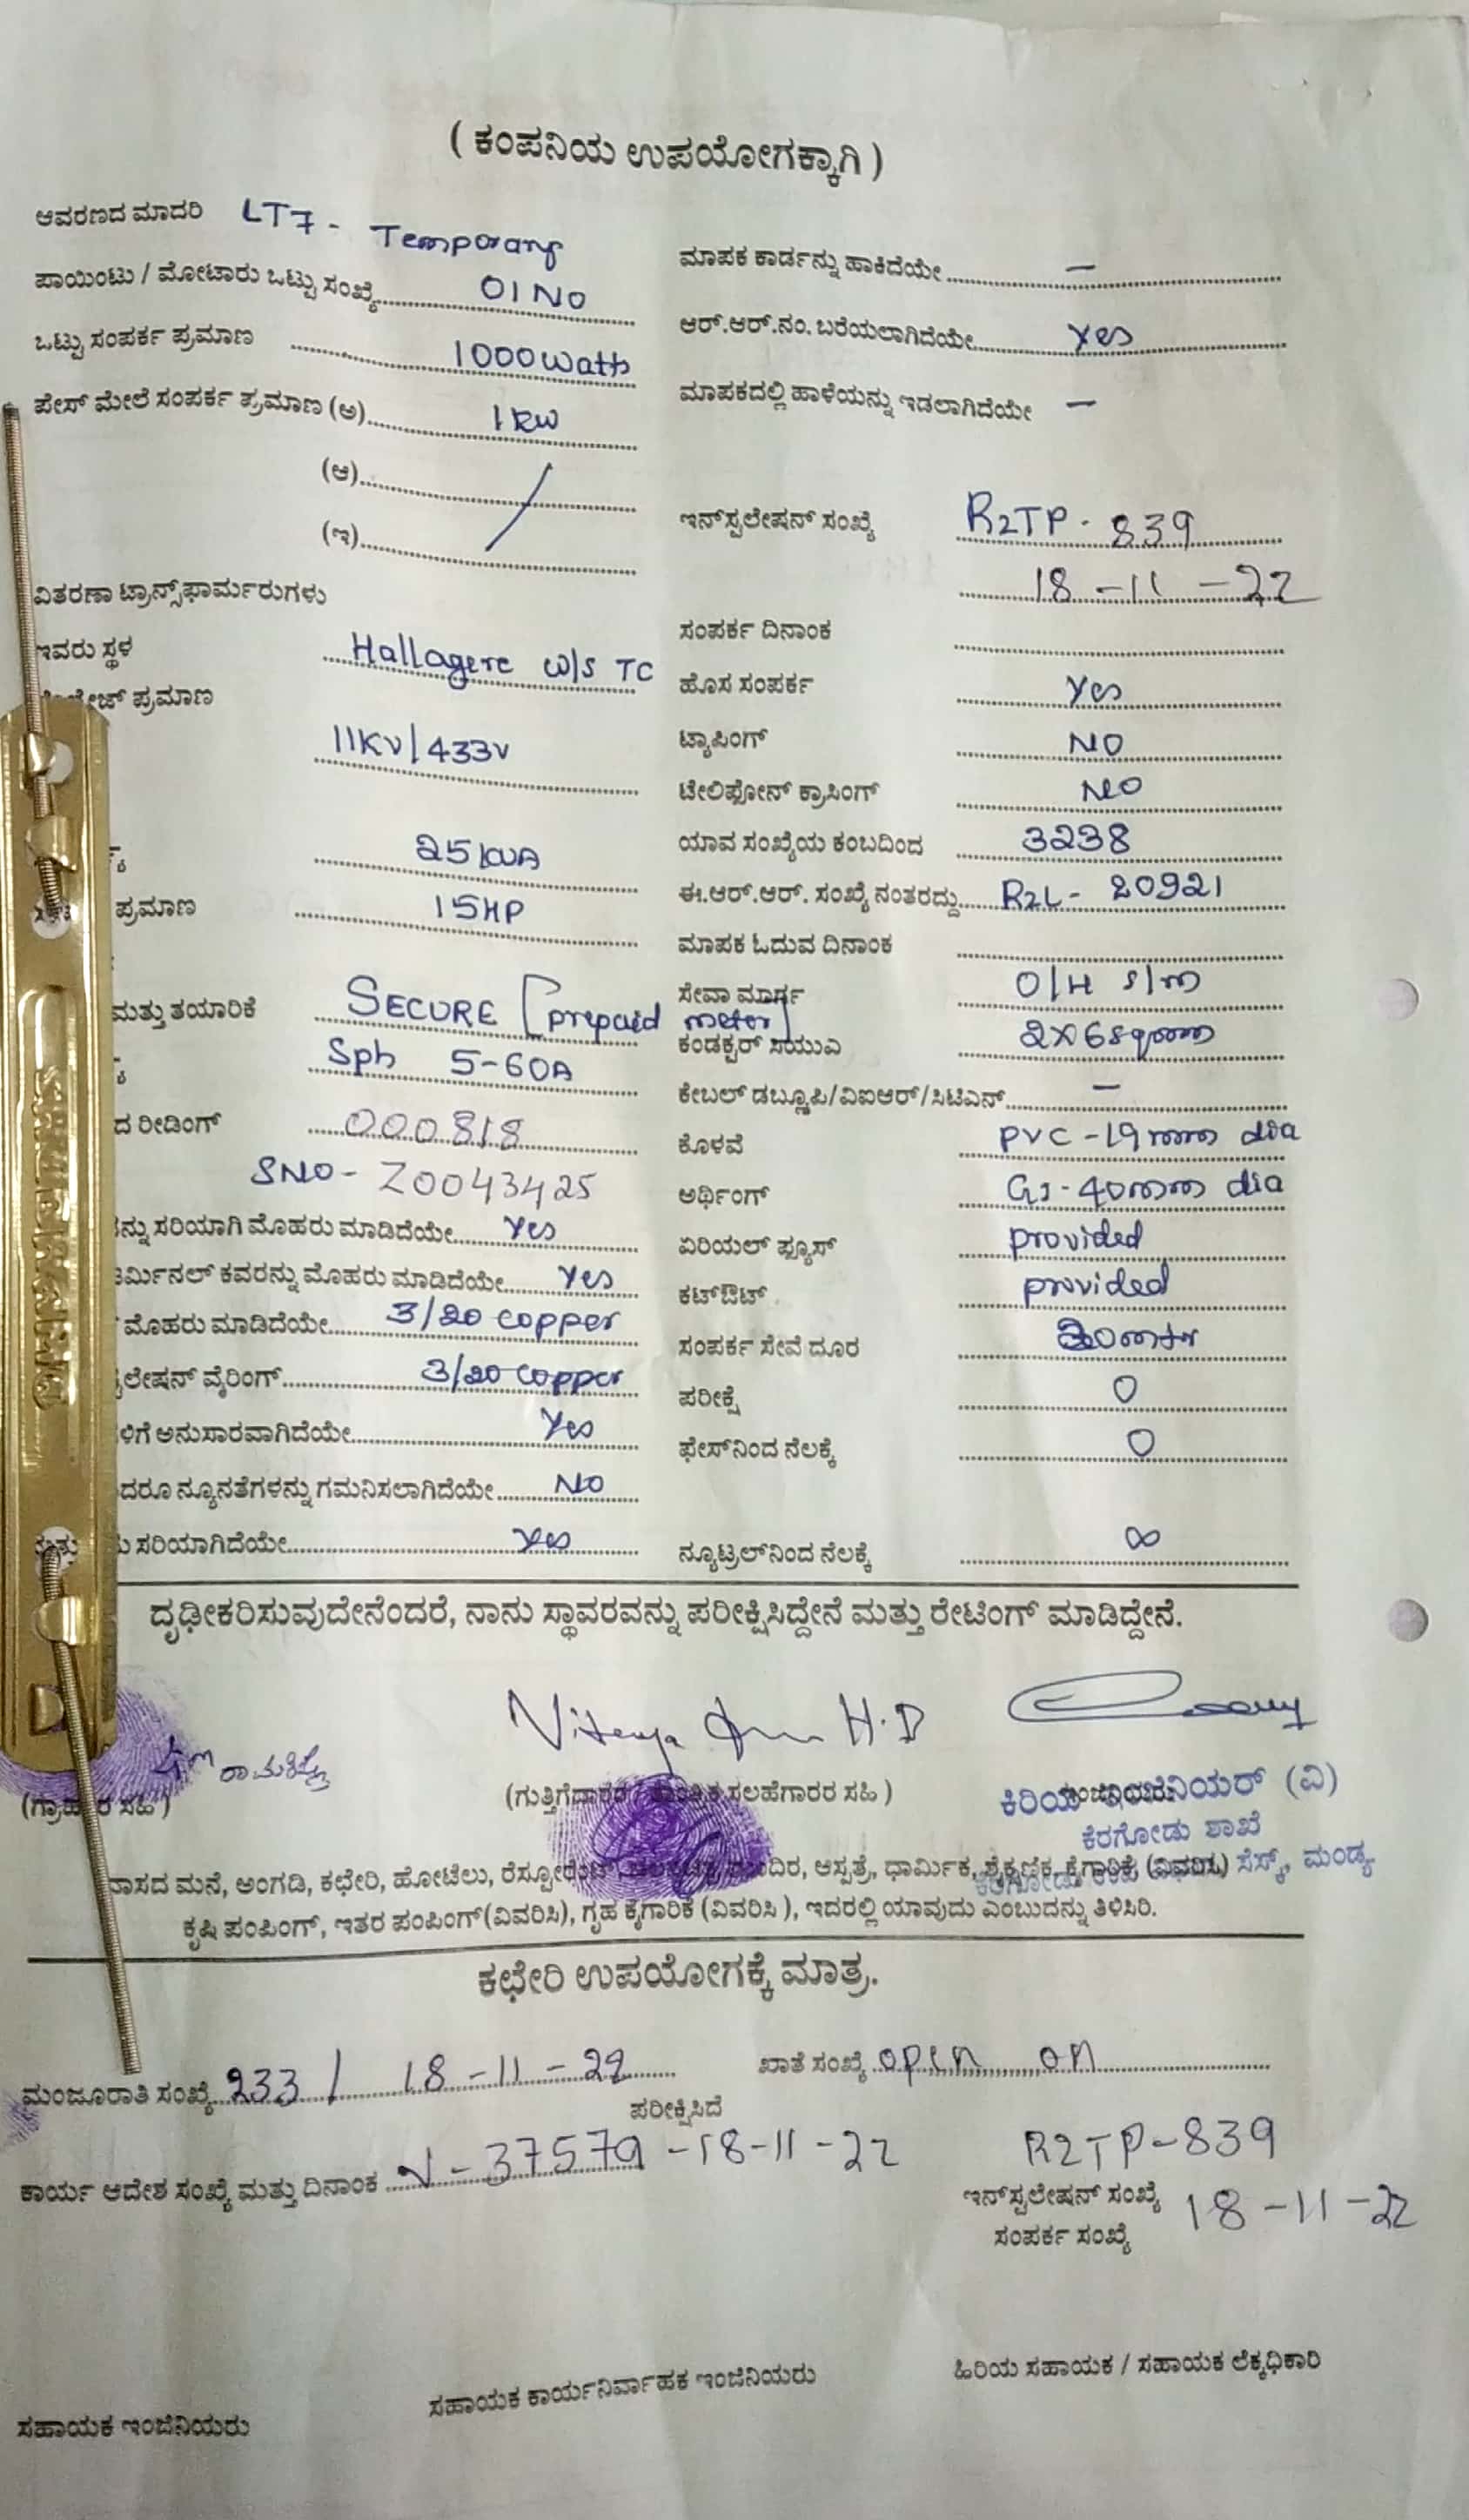 ( ಕಂಪನಿಯ ಉಪಯೋಗಕ್ಕಾಗಿ )
ಆವರಣದ ಮಾದರಿ LT7 - Temporary
ಪಾಯಿಂಟು / ಮೋಟಾರು ಒಟ್ಟು ಸಂಖ್ಯೆ 01 No
ಒಟ್ಟು ಸಂಪರ್ಕ ಪ್ರಮಾಣ 1000 watts
ಪೇಸ್ ಮೇಲೆ ಸಂಪರ್ಕ ಪ್ರಮಾಣ (ಅ) 1 KW
(ಆ)
(ಇ)
ವಿತರಣಾ ಟ್ರಾನ್ಸ್‌ಫಾರ್ಮರುಗಳು
ಇವರು ಸ್ಥಳ Hallagere W/S TC
ಪ್ರಮಾಣ
11KV/433V
25 KVA
ಪ್ರಮಾಣ 15HP
ಮತ್ತು ತಯಾರಿಕೆ SECURE [prepaid meter]
Sph 5-60A
ದ ರೀಡಿಂಗ್ 000818
SNO - Z0043425
ನ್ನು ಸರಿಯಾಗಿ ಮೊಹರು ಮಾಡಿದೆಯೇ Yes
ರ್ಮಿನಲ್ ಕವರನ್ನು ಮೊಹರು ಮಾಡಿದೆಯೇ Yes
ಮೊಹರು ಮಾಡಿದೆಯೇ 3/20 copper
ಲೇಷನ್ ವೈರಿಂಗ್ 3/20 copper
ಳಿಗೆ ಅನುಸಾರವಾಗಿದೆಯೇ Yes
ದರೂ ನ್ಯೂನತೆಗಳನ್ನು ಗಮನಿಸಲಾಗಿದೆಯೇ NO
ಸರಿಯಾಗಿದೆಯೇ Yes
ಮಾಪಕ ಕಾರ್ಡನ್ನು ಹಾಕಿದೆಯೇ —
ಆರ್.ಆರ್.ನಂ. ಬರೆಯಲಾಗಿದೆಯೇ Yes
ಮಾಪಕದಲ್ಲಿ ಹಾಳೆಯನ್ನು ಇಡಲಾಗಿದೆಯೇ —
ಇನ್‌ಸ್ಟಲೇಷನ್ ಸಂಖ್ಯೆ R2TP - 839
18 - 11 - 22
ಸಂಪರ್ಕ ದಿನಾಂಕ
ಹೊಸ ಸಂಪರ್ಕ Yes
ಟ್ಯಾಪಿಂಗ್ NO
ಟೇಲಿಫೋನ್ ಕ್ರಾಸಿಂಗ್ NO
ಯಾವ ಸಂಖ್ಯೆಯ ಕಂಬದಿಂದ 3238
ಈ.ಆರ್.ಆರ್. ಸಂಖ್ಯೆ ನಂತರದ್ದು R2L - 20921
ಮಾಪಕ ಓದುವ ದಿನಾಂಕ
ಸೇವಾ ಮಾರ್ಗ O/H S/m
ಕಂಡಕ್ಟರ್ ಸಯುಎ 2X6 sqmm
ಕೇಬಲ್ ಡಬ್ಲೂಪಿ/ವಿಐಆರ್/ಸಿಟಿಎನ್ —
ಕೊಳವೆ PVC - 19 mm dia
ಅರ್ಥಿಂಗ್ GI - 40mm dia
ಏರಿಯಲ್ ಫ್ಯೂಸ್ provided
ಕಟ್‌ಔಟ್ provided
ಸಂಪರ್ಕ ಸೇವೆ ದೂರ
ಪರೀಕ್ಷೆ 0
ಫೇಸ್‌ನಿಂದ ನೆಲಕ್ಕೆ 0
ನ್ಯೂಟ್ರಲ್‌ನಿಂದ ನೆಲಕ್ಕೆ ∞
ದೃಢೀಕರಿಸುವುದೇನೆಂದರೆ, ನಾನು ಸ್ಥಾವರವನ್ನು ಪರೀಕ್ಷಿಸಿದ್ದೇನೆ ಮತ್ತು ರೇಟಿಂಗ್ ಮಾಡಿದ್ದೇನೆ.
H.D
(ಗ್ರಾಹಕರ ಸಹಿ)
ಸಲಹೆಗಾರರ ಸಹಿ )
ಕಿರಿಯ ಇಂಜಿನಿಯರ್ (ವಿ)
ಕೆರಗೋಡು ಶಾಖೆ
ಸೆಸ್ಕ್, ಮಂಡ್ಯ
ವಾಸದ ಮನೆ, ಅಂಗಡಿ, ಕಛೇರಿ, ಹೋಟೆಲು, ಆಸ್ಪತ್ರೆ, ಧಾರ್ಮಿಕ, ಶೈಕ್ಷಣಿಕ, ಕೈಗಾರಿಕೆ, (ವಿವರಿಸಿ)
ಕೃಷಿ ಪಂಪಿಂಗ್, ಇತರ ಪಂಪಿಂಗ್(ವಿವರಿಸಿ), ಗೃಹ ಕೈಗಾರಿಕೆ (ವಿವರಿಸಿ ), ಇದರಲ್ಲಿ ಯಾವುದು ಎಂಬುದನ್ನು ತಿಳಿಸಿರಿ.
ಕಛೇರಿ ಉಪಯೋಗಕ್ಕೆ ಮಾತ್ರ.
ಮಂಜೂರಾತಿ ಸಂಖ್ಯೆ 233 / 18 - 11 - 22 ಖಾತೆ ಸಂಖ್ಯೆ open on
ಪರೀಕ್ಷಿಸಿದೆ
ಕಾರ್ಯ ಆದೇಶ ಸಂಖ್ಯೆ ಮತ್ತು ದಿನಾಂಕ N - 37579 - 18-11-22 R2TP-839
ಇನ್‌ಸ್ಟಲೇಷನ್ ಸಂಖ್ಯೆ 18-11-22
ಸಂಪರ್ಕ ಸಂಖ್ಯೆ
ಹಿರಿಯ ಸಹಾಯಕ / ಸಹಾಯಕ ಲೆಕ್ಕಧಿಕಾರಿ
ಸಹಾಯಕ ಕಾರ್ಯನಿರ್ವಾಹಕ ಇಂಜಿನಿಯರು
ಸಹಾಯಕ ಇಂಜಿನಿಯರು